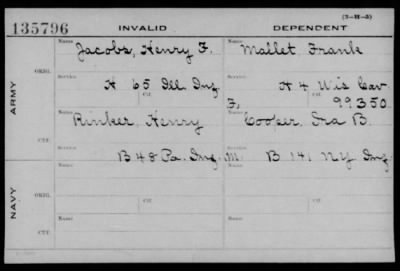 (3-H-5)
135796 INVALID DEPENDENT
Name Name
Jacobs, Henry F. Mallet Frank
ORIG.
Service Service
H 65 Ill Inf. H 4 Wis Cav
Ctf. Ctf.
ARMY
F, 99350.
Name Name
Rinker, Henry Cooper, Ira B.
CTF.
Service Service
B 48 Pa. Inf. M. B 141 NY Inf
Name Name
NAVY
ORIG.
Service Ctf. Service Ctf.
Name Name
CTF.
Service Service